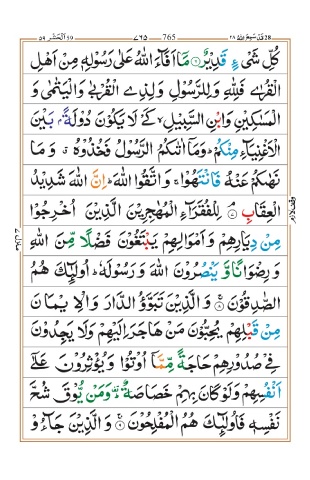 قد سمع الله ٢٨ 765 ٧٦٥ الحشر ٥٩
كُلِّ شَىْءٍ قَدِيْرٌ ۝٦ مَاۤ اَفَآءَ اللّٰهُ عَلٰى رَسُوْلِهٖ مِنْ اَهْلِ
الْقُرٰى فَلِلّٰهِ وَلِلرَّسُوْلِ وَلِذِى الْقُرْبٰى وَالْيَتٰمٰى وَ
الْمَسٰكِيْنِ وَابْنِ السَّبِيْلِ ۙ كَىْ لَا يَكُوْنَ دُوْلَةًۢ بَيْنَ
الْاَغْنِيَآءِ مِنْكُمْ ؕ وَمَاۤ اٰتٰىكُمُ الرَّسُوْلُ فَخُذُوْهُ ۚ وَ مَا
نَهٰىكُمْ عَنْهُ فَانْتَهُوْا ۚ وَاتَّقُوا اللّٰهَ ؕ اِنَّ اللّٰهَ شَدِيْدُ
الْعِقَابِ ۝٧ لِلْفُقَرَآءِ الْمُهٰجِرِيْنَ الَّذِيْنَ اُخْرِجُوْا
مِنْ دِيَارِهِمْ وَاَمْوَالِهِمْ يَبْتَغُوْنَ فَضْلًا مِّنَ اللّٰهِ
وَرِضْوَانًا وَّيَنْصُرُوْنَ اللّٰهَ وَرَسُوْلَهٗ ؕ اُولٰٓئِكَ هُمُ
الصّٰدِقُوْنَ ۝٨ وَالَّذِيْنَ تَبَوَّؤُ الدَّارَ وَالْاِيْمَانَ
مِنْ قَبْلِهِمْ يُحِبُّوْنَ مَنْ هَاجَرَ اِلَيْهِمْ وَلَا يَجِدُوْنَ
فِىْ صُدُوْرِهِمْ حَاجَةً مِّمَّاۤ اُوْتُوْا وَيُؤْثِرُوْنَ عَلٰٓى
اَنْفُسِهِمْ وَلَوْ كَانَ بِهِمْ خَصَاصَةٌ ؕ وَمَنْ يُّوْقَ شُحَّ
نَفْسِهٖ فَاُولٰٓئِكَ هُمُ الْمُفْلِحُوْنَ ۝٩ وَالَّذِيْنَ جَآءُوْ